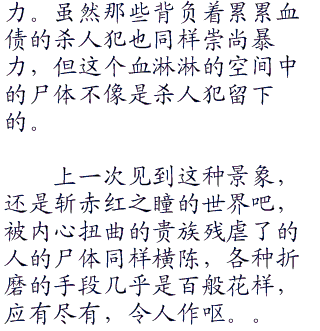 力。虽然那些背负着累累血
债的杀人犯也同样崇尚暴
力，但这个血淋淋的空间中
的尸体不像是杀人犯留下
的。
上一次见到这种景象，
还是斩赤红之瞳的世界吧，
被内心扭曲的贵族残虐了的
人的尸体同样横陈，各种折
磨的手段几乎是百般花样，
应有尽有，令人作呕。。